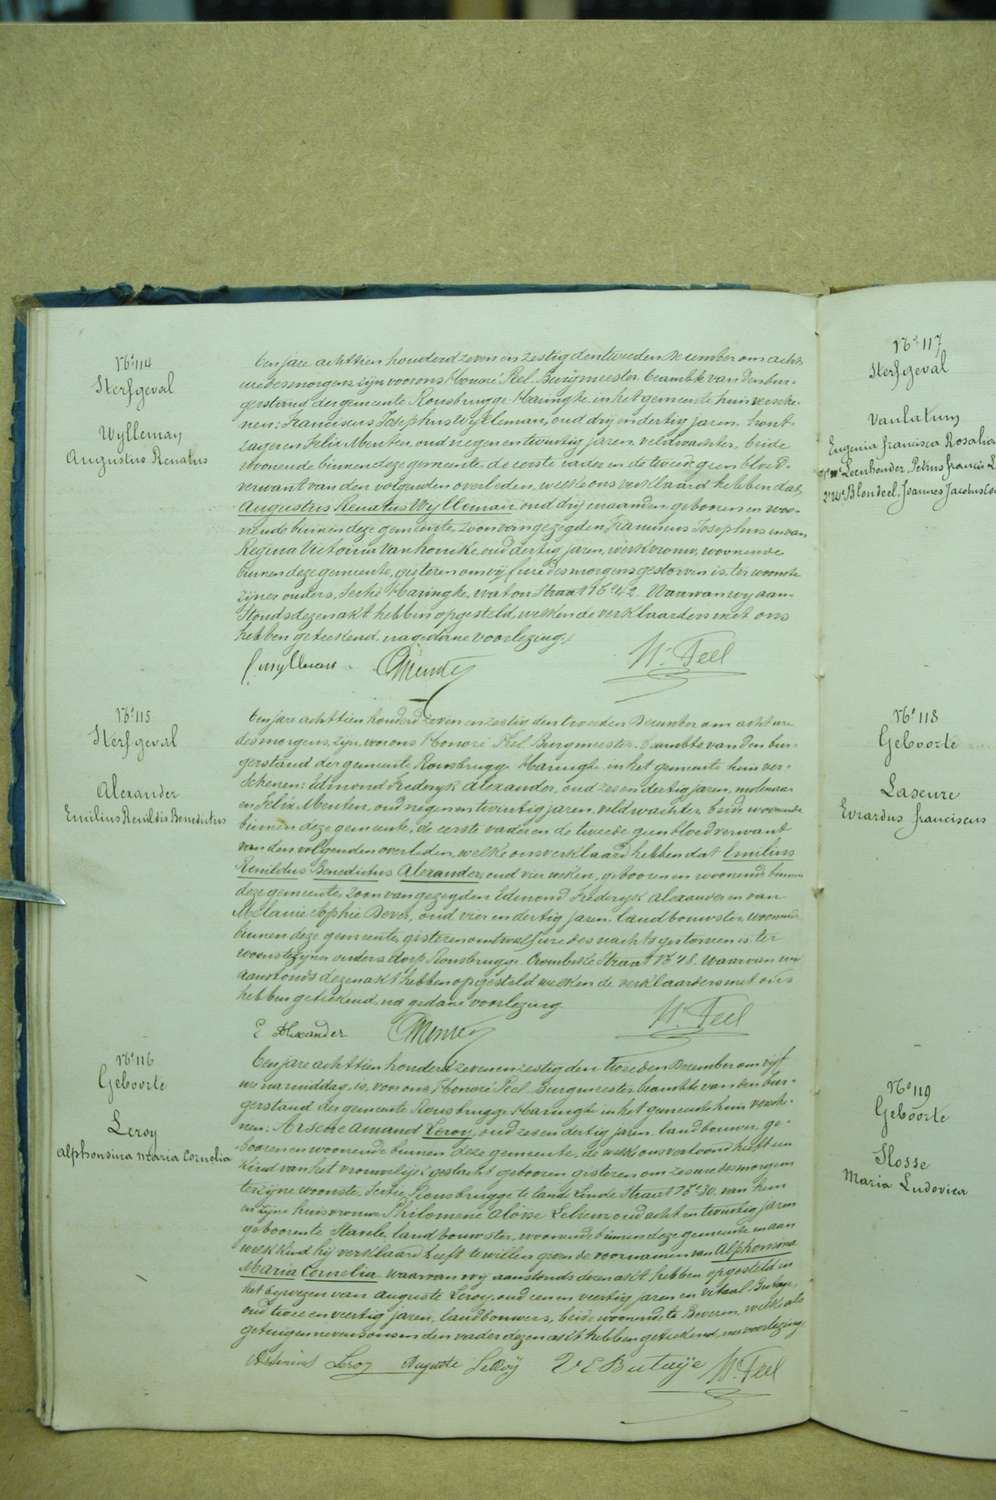 N° 114
Sterfgeval
Wylleman
Augustus Renatus
Ten jare achttien honderd zeven en zestig den tweeden December om acht
ure des morgens zijn voor ons Honoré Peel Burgmeester beambte van den bur-
gerstand der gemeente Rousbrugge Haringhe in het gemeente huis versche-
nen: Franciscus Josephus Wylleman, oud drij en dertig jaren, hout-
zager en Felix Menten, oud negen en twintig jaren, veldwachter, beide
woonende binnen deze gemeente, de eerste vader en de tweede geen bloed-
verwant van den volgenden overleden, welke ons verklaard hebben dat
Augustus Renatus Wylleman oud drij maanden geboren en woo-
nende binnen deze gemeente Zoon van gezegden Franciscus Josephus en van
Regina Victorina Vanhoucke oud dertig jaren, werkvrouw, woonende
binnen deze gemeente, gisteren om vijf ure des morgens gestorven is, ter woonste
zijner ouders, Sectie Haringhe, waton Straat N° 42. Waarvan wij aan-
stonds dezen akt hebben opgesteld, welken de verklaarders met ons
hebben geteekend, na gedane voorlezing.
f. wylleman
H. Peel
N° 115
Sterfgeval
Alexander
Emilius Reneldis Benedictus
Ten jare achttien honderd zeven en zestig den tweeden December om acht ure
des morgens, zijn voor ons Honoré Peel Burgmeester, beambte van den bur-
gerstand der gemeente Rousbrugge Haringhe in het gemeente huis ver-
schenen: Edmond Frederyk Alexander, oud zes en dertig jaren, molenaar
en Felix Menten, oud negen en twintig jaren, veldwachter, beide woonende
binnen deze gemeente, de eerste vader en de tweede geen bloedverwant
van den volgenden overleden, welke ons verklaard hebben dat Emilius
Reneldus Benedictus Alexander, oud vier weken, geboren en woonende binnen
deze gemeente, zoon van gezegden Edmond Frederyk Alexander en van
Melanie Sophie Dever, oud vier en dertig jaren, landbouwster, woonende
binnen deze gemeente, gisteren om twaalf ure des nachts gestorven is ter
woonste zijner ouders dorp Rousbrugge, Crombeke Straat N° 48. Waarvan wij
aanstonds dezen akt hebben opgesteld welken de verklaarders met ons
hebben geteekend, na gedane voorlezing
E Alexander
H. Peel
N° 116
Geboorte
Leroy
Alphonsina Maria Cornelia
Ten jare achttien honderd zeven en zestig den tweeden December om vijf
ure namiddag, is, voor ons Honoré Peel Burgmeester beambte van den bur-
gerstand der gemeente Rousbrugge Haringhe in het gemeente huis versche-
nen: Arsène Amand Leroy, oud zes en dertig jaren, landbouwer, ge-
boren en woonende binnen deze gemeente, de welk ons vertoond heeft een
kind van het vrouwelijk geslacht geboren gisteren om zes ure des morgens
ter zijne woonste, Sectie Rousbrugge te lande Linde Straat N° 30, van hem
en zijne huisvrouw Philomene Aloise Lebeun, oud acht en twintig jaren
geboren te Stavele, landbouwster, woonende binnen deze gemeente en aan
welk kind hij verklaard heeft te willen geven de voornamen van Alphonsina
Maria Cornelia. waarvan wij aanstonds dezen akt hebben opgesteld in
het bijwezen van Auguste Leroy, oud een en veertig jaren en Vitaal Butaye,
oud twee en veertig jaren, landbouwers, beide woonende te Beveren, welke als
getuigen nevens ons en den vader dezen akt hebben geteekend, na voorlezing
Leroy Auguste LeRoy V E Butaije H. Peel
N° 117
Sterfgeval
Vanlatum
Eugenia francisca Rosalia
Leenhouder, Petrus francis
Blondeel, Joannes Jacobus
N° 118
Geboorte
Laseure
Evrardus franciscus
N° 119
Geboorte
Hosse
Maria Ludovica